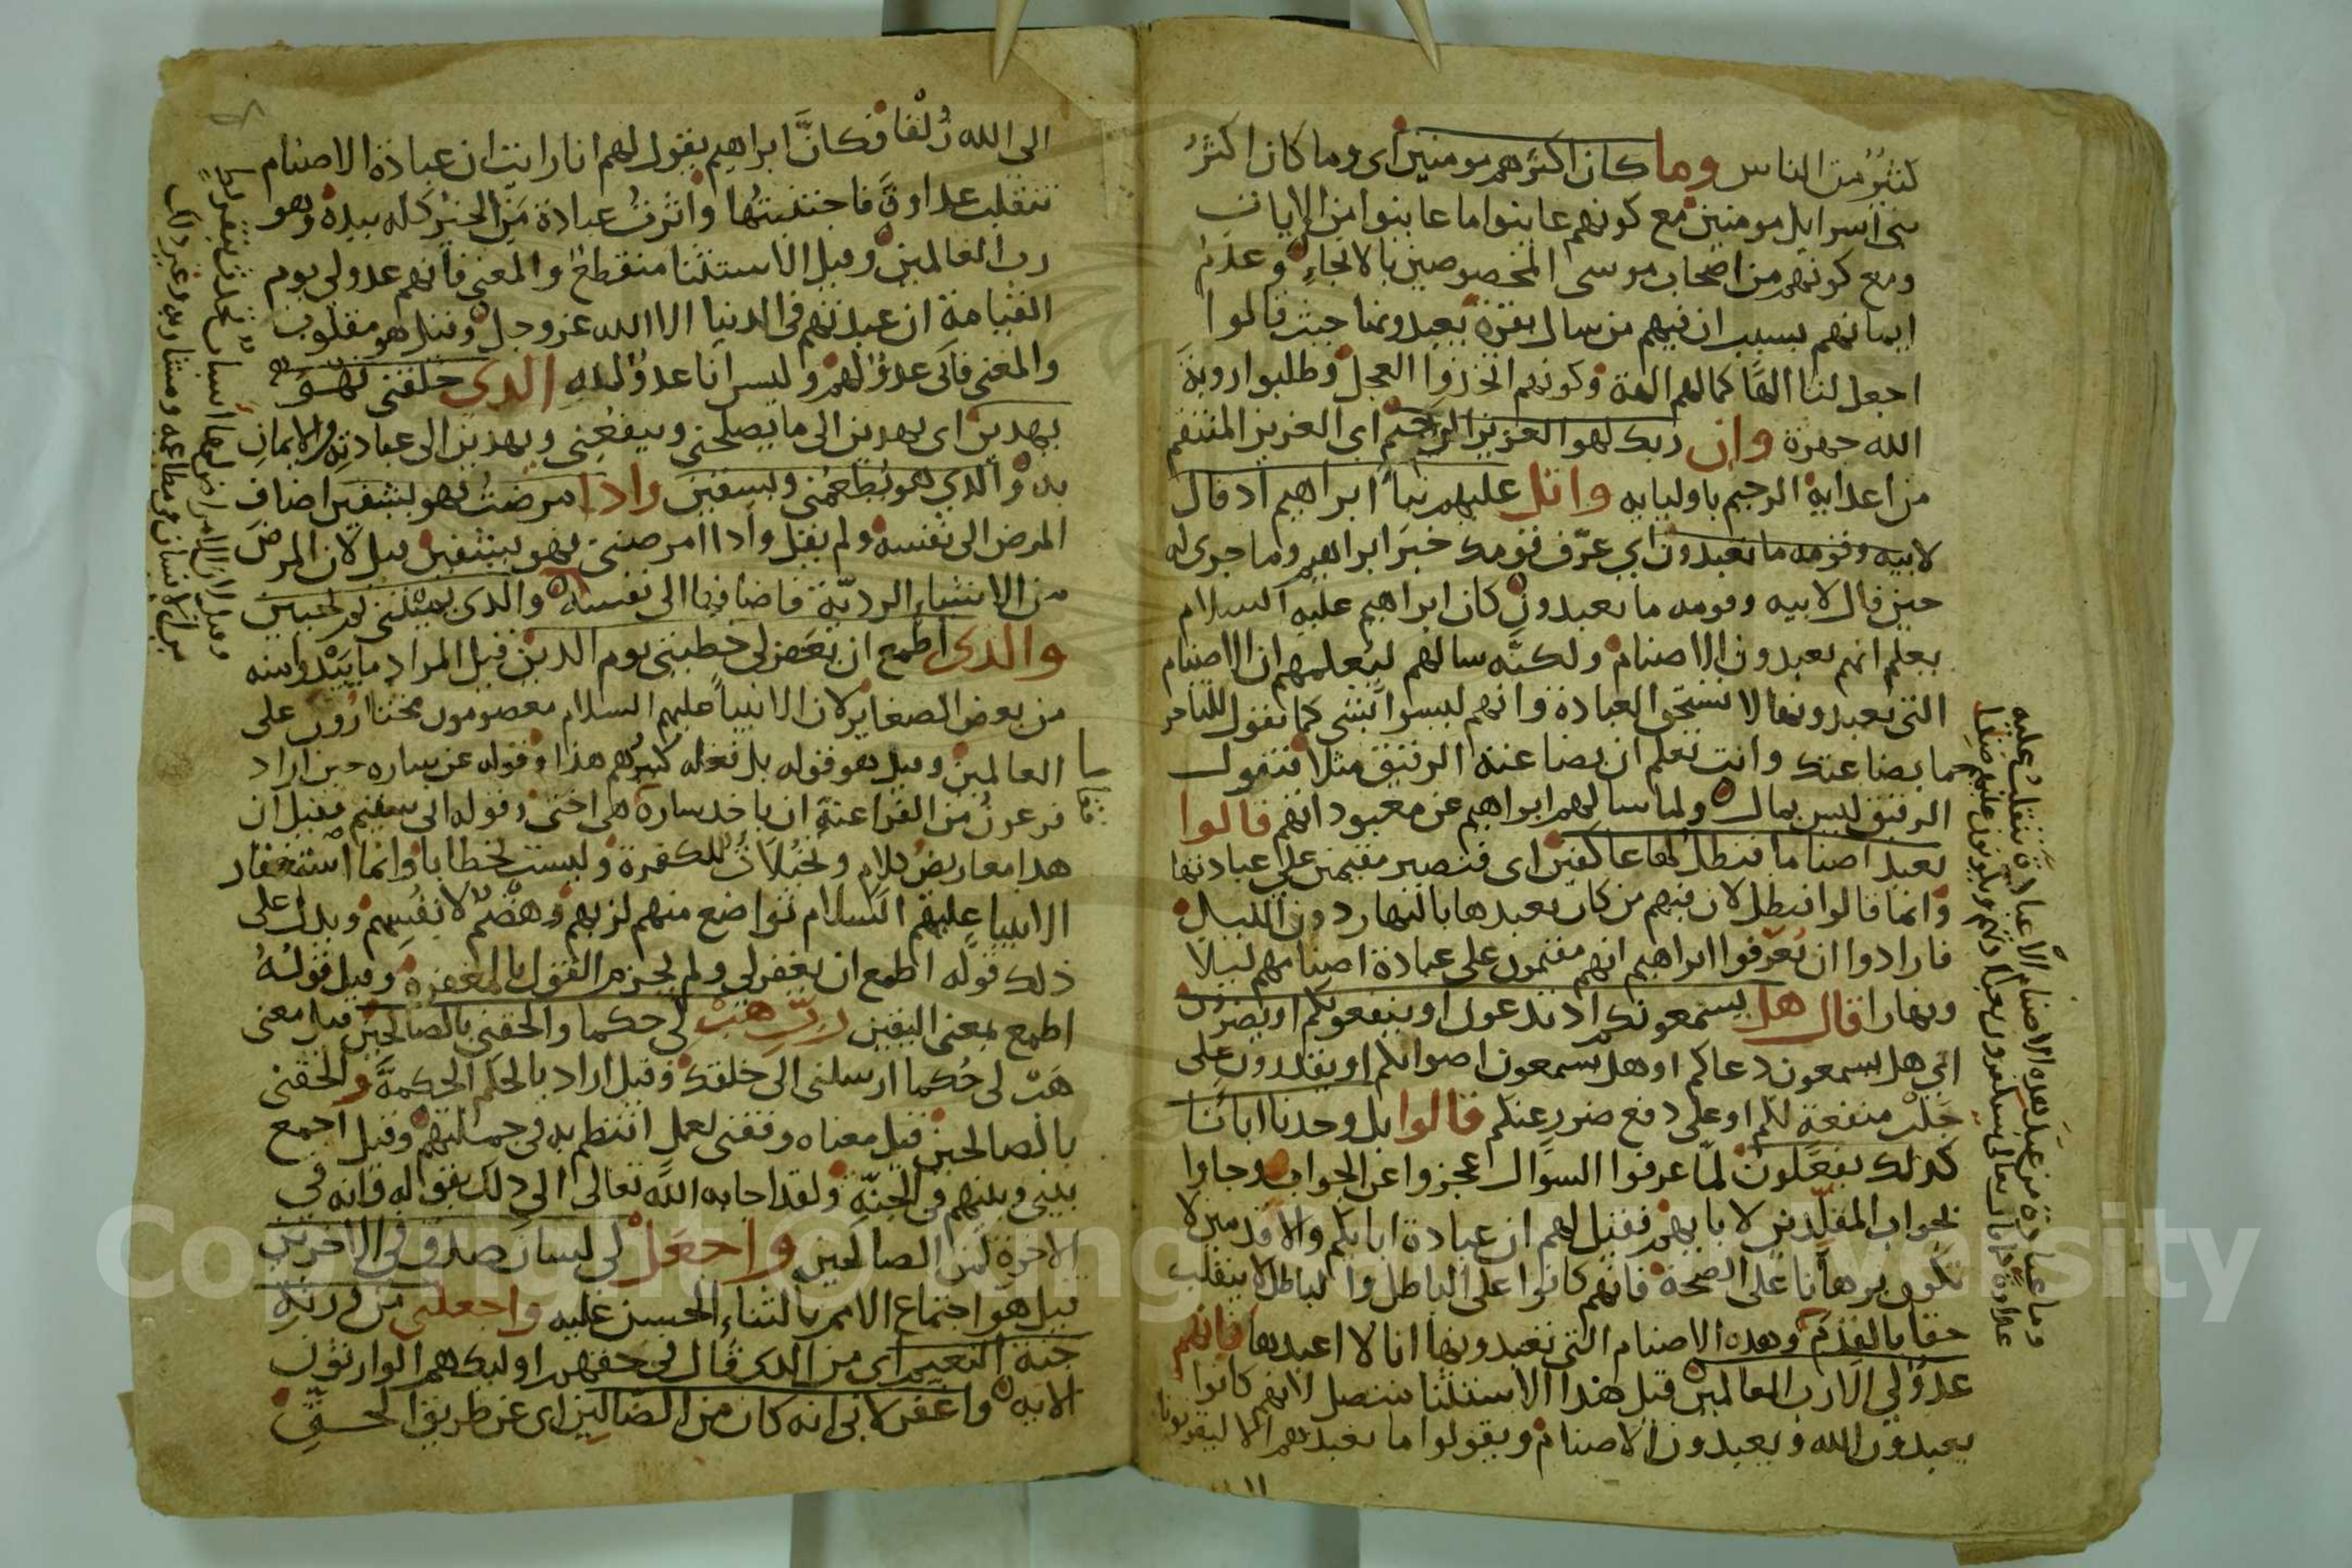 كثير من الناس وما كان اكثرهم مومنين اى وما كان اكثر
بنى اسرايل مومنين مع كونهم عاينوا ما عاينوا من الايات
ومع كونهم من اصحاب موسى المخصوصين بالانجاء وعدم
ايمانهم بسبب ان فيهم من سال بقرة يعبدونها حيث قالوا
اجعل لنا الها كما لهم الهة وكونهم اتخذوا العجل وطلبوا روية
الله جهرة وان ربك لهو العزيز الرحيم اى العزيز المنتقم
من اعدايه الرحيم باوليايه واتل عليهم نبأ ابراهيم اذ قال
لابيه وقومه ما تعبدون اي عرّف قومك خبر ابراهيم وما جرى له
حين قال لابيه وقومه ما تعبدون كان ابراهيم عليه السلام
يعلم انهم يعبدون الاصنام ولكنّه سالهم ليعلمهم ان الاصنام
التى يعبدونها لا تستحق العبادة وانهم ليسوا بشى كما تقول للتاجر
ما بضاعتك وانت تعلم ان بضاعته الرقيق مثلا فتقول
الرقيق ليس بمال ولما سالهم ابراهيم عن معبوداتهم قالوا
نعبد اصناما فنظل لها عاكفين اى فنصير مقيمين على عبادتها
وانما قالوا فنظل لان فيهم من كان يعبدها بالنهار دون الليل
فارادوا ان يعرفوا ابراهيم انهم مقيمون على عبادة اصنامهم ليلا
ونهارا قال هل يسمعونكم اذ تدعون او ينفعونكم او يضرون
اي هل يسمعون دعاكم او هل يسمعون اصواتكم او يقدرون على
جلب منفعة لكم او على دفع ضرر عنكم قالوا بل وجدنا اباءنا
كذلك يفعلون لمّا عرفوا السوال عجزوا عن الجواب وجاوا
بجواب المقلّدين لابايهم فقيل لهم ان عبادة ابايكم والاقدمين لا
تكون برهانا على الصحة فانهم كانوا على الباطل والباطل لا ينقلب
حقا بالقدم وهذه الاصنام التى تعبدونها انا لا اعبدها فانهم
عدوٌ لي الا رب العالمين قيل هذا الاستثنا متصل لانهم كانوا
يعبدون الله ويعبدون الاصنام ويقولوا ما نعبدهم الا ليقربونا
وما عبادة من عبد هذه الاصنام الا عبادة تنقلب عليه
عداوة كما قال تعالى سيكفرون بعبادتهم ويكونون عليهم ضدا
الى الله زلفا فكانّ ابراهيم يقول لهم انا رايت ان عبادة الاصنام
تنقلب عداوة فاجتنبتها واثرت عبادة من الخير كله بيده وهو
رب العالمين وقيل الاستثنا منقطع والمعنى فانهم عدو لي يوم
القيامة ان عبدتهم في الدنيا الا الله عز وجل وقيل هو مقلوب
والمعنى فانى عدوٌ لهم وليس انا عدوٌ لله الذى خلقنى فهو
يهدين اى يهدين الى ما يصلحنى وينفعنى ويهدين الى عبادته والايمان
به والذي هو يطعمنى ويسقين واذا مرضت فهو يشفين اضاف
المرض الى نفسه ولم يقل واذا امرضنى فهو يشفين قيل لان المرض
من الاشياء الرديّة فاضافها الى نفسه والذى يميتنى ثم يحيين
والذى اطمع ان يغفر لى خطيتى يوم الدين قيل المراد ما يبدوا منه
من بعض الصغاير لان الانبيا عليهم السلام معصومون مختارون على
العالمين وقيل هو قوله بل فعله كبيرهم هذا وقوله عن ساره حين اراد
فرعون من الفراعنة ان ياخذ سارة هى اختى وقوله انى سقيم فقيل ان
هذا معاريض كلام وتخيلات للكفرة وليست بخطايا وانما استغفار
الانبيا عليهم السلام تواضع منهم لربهم وهضم لانفسهم ويدل على
ذلك قوله اطمع ان يغفر لى ولم يجزم القول بالمغفرة وقيل قوله
اطمع بمعنى اليقين ربّ هب لى حكما والحقنى بالصالحين قيل معنى
هب لى حكما ارسلنى الى خلقك وقيل اراد بالحكم الحكمة والحقنى
بالصالحين قيل معناه وفقنى لعمل انتظم به فى جملتهم وقيل اجمع
بينى وبينهم فى الجنّة ولقد اجابه الله تعالى الى ذلك بقوله وانه فى
الاخرة لمن الصالحين واجعل لى لسان صدق فى الاخرين
قيل هو اجتماع الامم بالثناء الحسن عليه واجعلنى من ورثة
جنة النعيم اى من الذى قال فى حقهم اوليك هم الوارثون
الاية واغفر لابى انه كان من الضالين اى عن طريق الحق